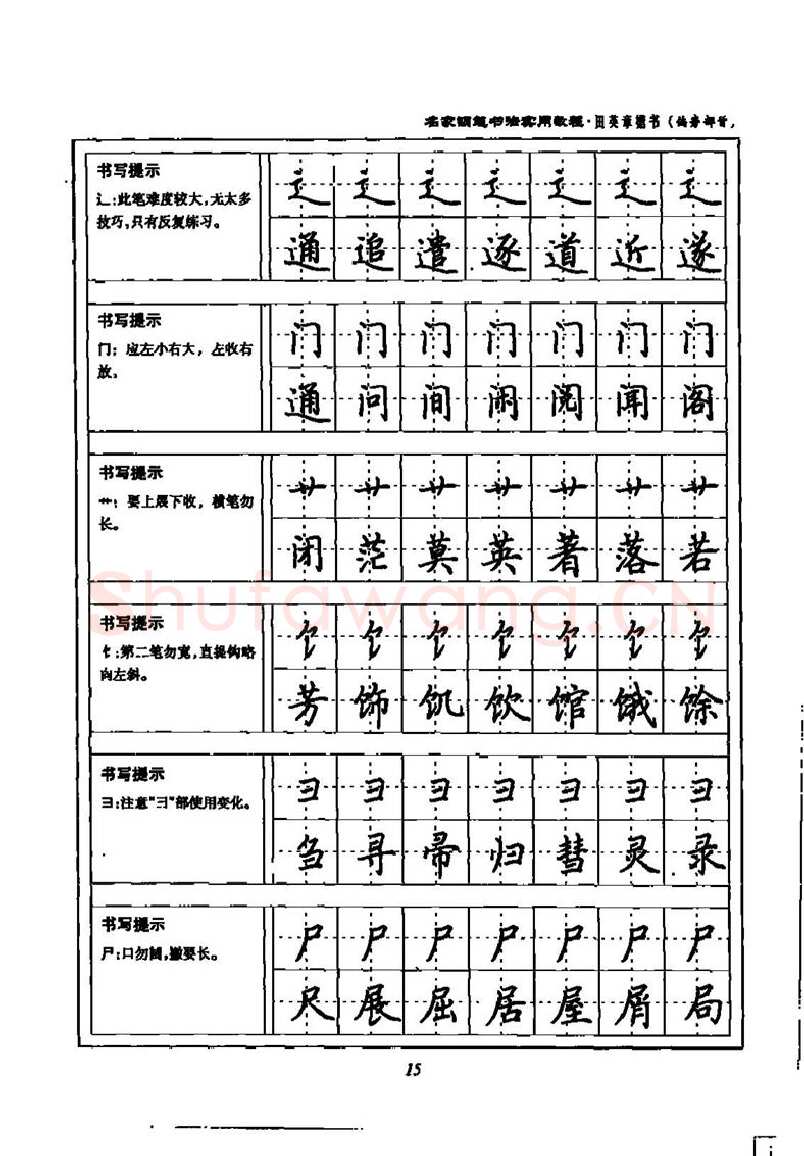 名家钢笔书法实用教程·田英章楷书(偏旁部首)
书写提示
辶:此笔难度较大,无太多
技巧,只有反复练习。
辶辶辶辶辶辶辶
通追遣逐道近遂
书写提示
门:应左小右大,左收右
放。
门门门门门门门
通问间闲阅闻阁
书写提示
艹:要上展下收,横笔勿
长。
艹艹艹艹艹艹艹
闭茫莫英著落若
Shufawang.CN
书写提示
饣:第二笔勿宽,直提钩略
向左斜。
饣饣饣饣饣饣饣
芳饰饥饮馆饿馀
书写提示
彐:注意"彐"部使用变化。
彐彐彐彐彐彐彐
刍寻帚归彗灵录
书写提示
尸:口勿圆,撇要长。
尸尸尸尸尸尸尸
尺展屈居屋屑局
15